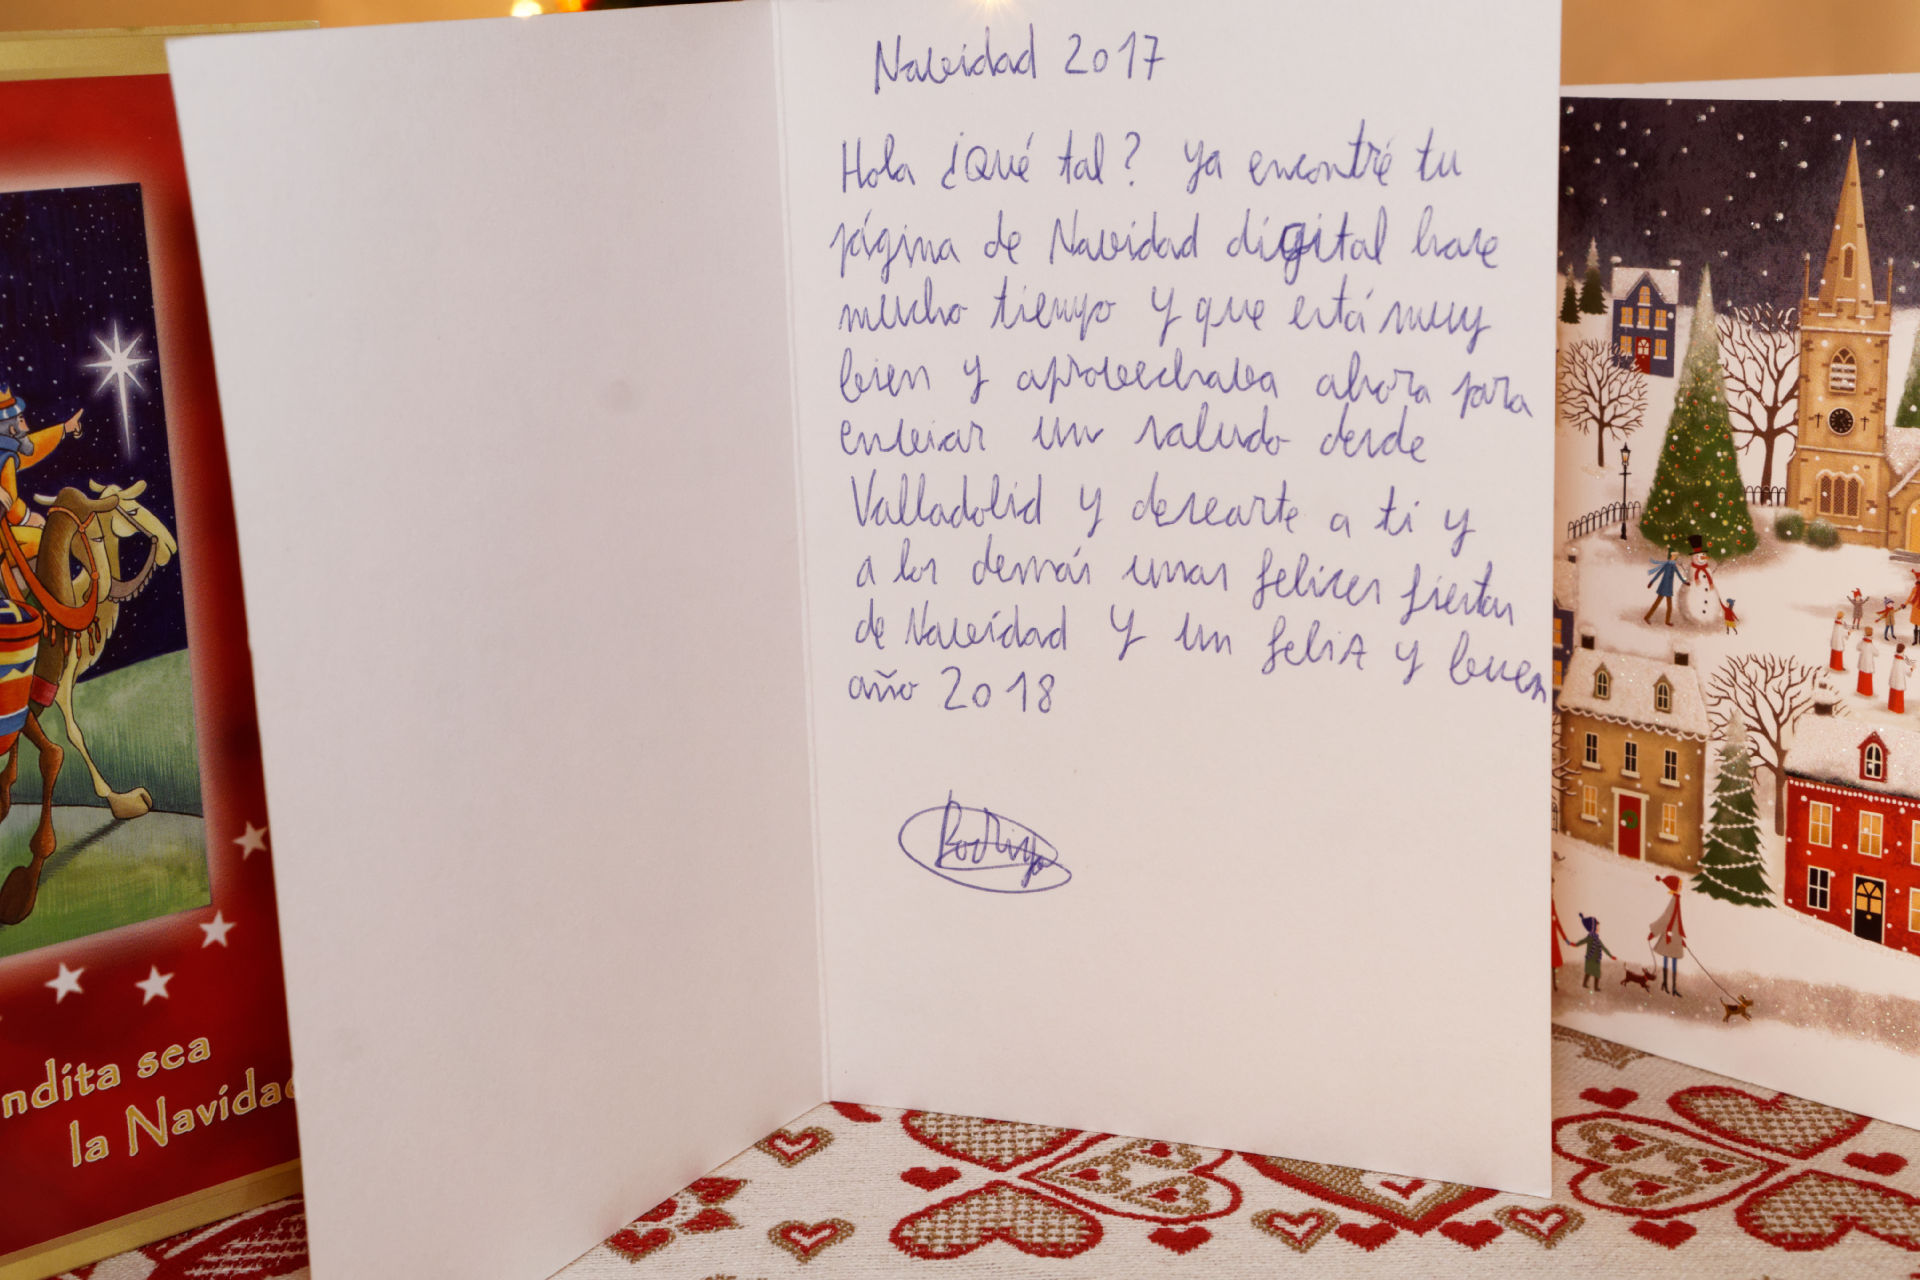 Navidad 2017
Hola ¿Qué tal? Ya encontré tu
página de Navidad digital hace
mucho tiempo y que está muy
bien y aprovechava ahora para
enviar un saludo desde
Valladolid y desearte a ti y
a los demás unas felices fiestas
de Navidad y un feliz y buen
año 2018
Rodrigo
ndita sea
la Navidad